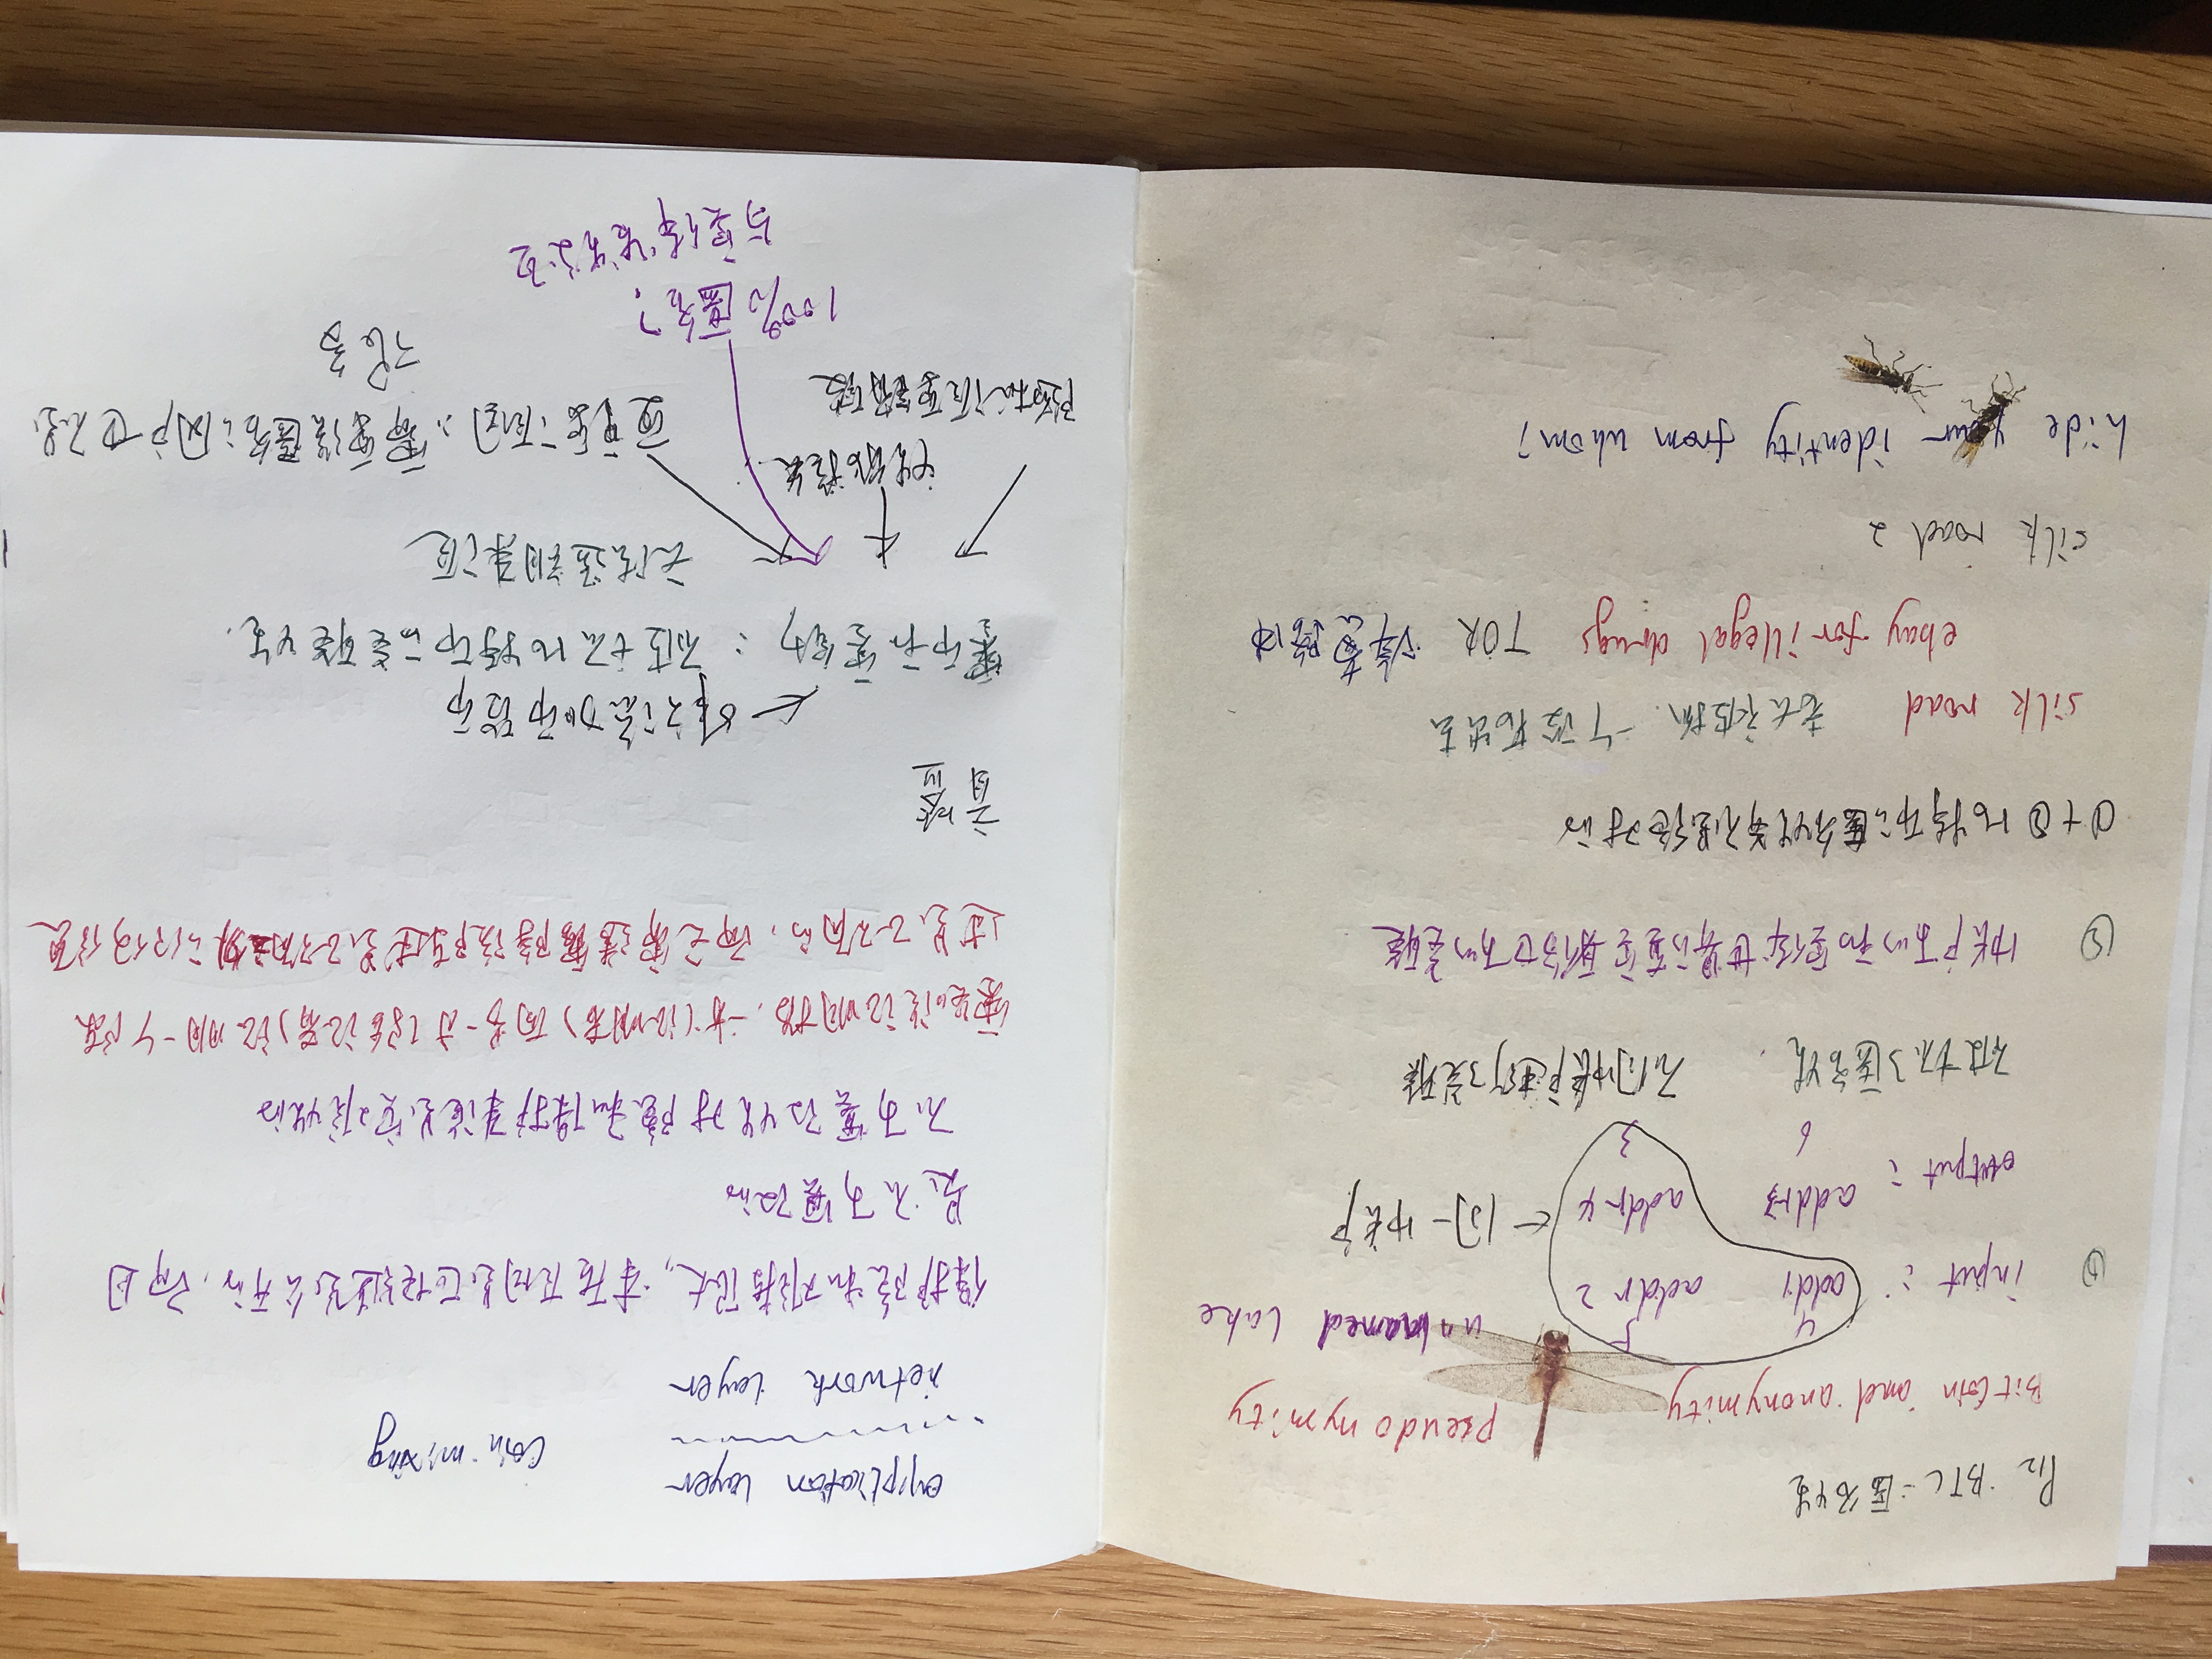 P12 BTC-匿名性
BitCoin and anonymity
pseudonymity
unnamed lake
4 5
① input: addr1 addr 2
← 同一个帐户
output: addr3 addr 4
6 3
破坏了匿名性. 不同帐户进行了关联
② 帐户可以和实体世界的真实身份也可以关联
①+② 比特币的匿名性并不是绝对的
silk road 老大被抓. 一个没花出去
ebay for illegal drugs TOR 洋葱路由
silk road 2
hide your identity from whom?
application layer
coin mixing
network layer
保护隐私难度很大, 本质原因是区块链是公开的, 而且
是不可篡改的
不可篡改性对隐私保护来说是灾难性的
零知识证明指, 一方(证明者)向另一方(验证者)证明一个陈
述是正确的, 而无需透露除该陈述是正确之外的任何信息
盲签
← 所谓添加币货币
零币和零钞: 破坏比特币的关联性.
无法追溯来源
性能损失
随机源要销毁
更重要原因: 需要强匿名的用户也不是
很多
100%匿名?
与实体发生交互